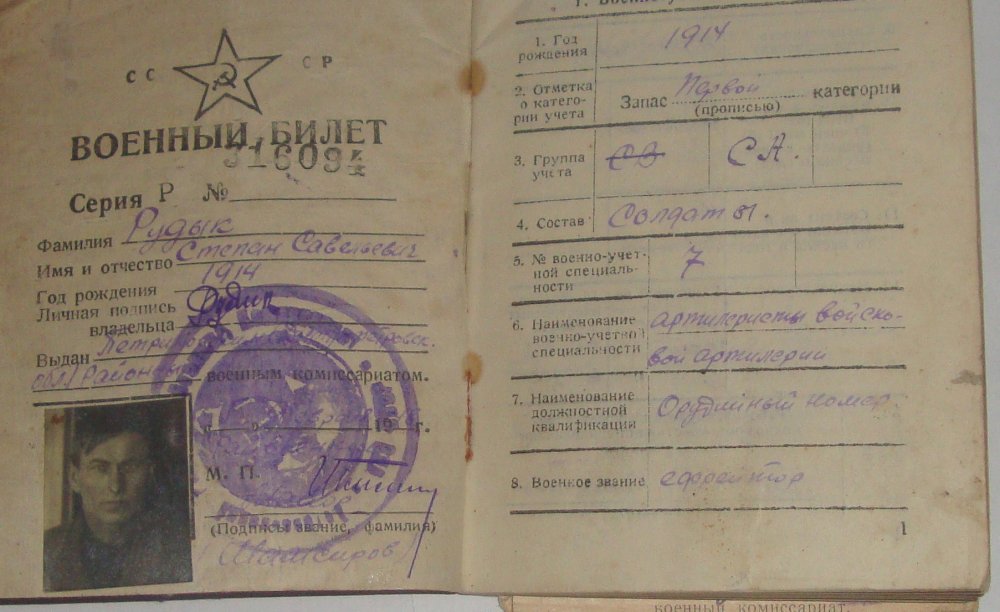 СС СР
ВОЕННЫЙ БИЛЕТ
316094
Серия Р №
Фамилия Рудык
Имя и отчество Степан Савельевич
Год рождения 1914
Личная подпись
владельца Рудик
Выдан
обл. Район
военным комиссариатом.
19 г.
М. П.
(Подпись, звание, фамилия)
1. Год
рождения
1914
2. Отметка
о катего-
рии учета
Запас Первой категории
(прописью)
3. Группа
учета
СА.
4. Состав Солдаты.
5. № военно-учет-
ной специаль-
ности
7
6. Наименование
военно-учетной
специальности
артилеристы войско-
вой артилерии
7. Наименование
должностной
квалификации
Орудийный номер
8. Военное звание ефрейтор
1
военный комиссариат.